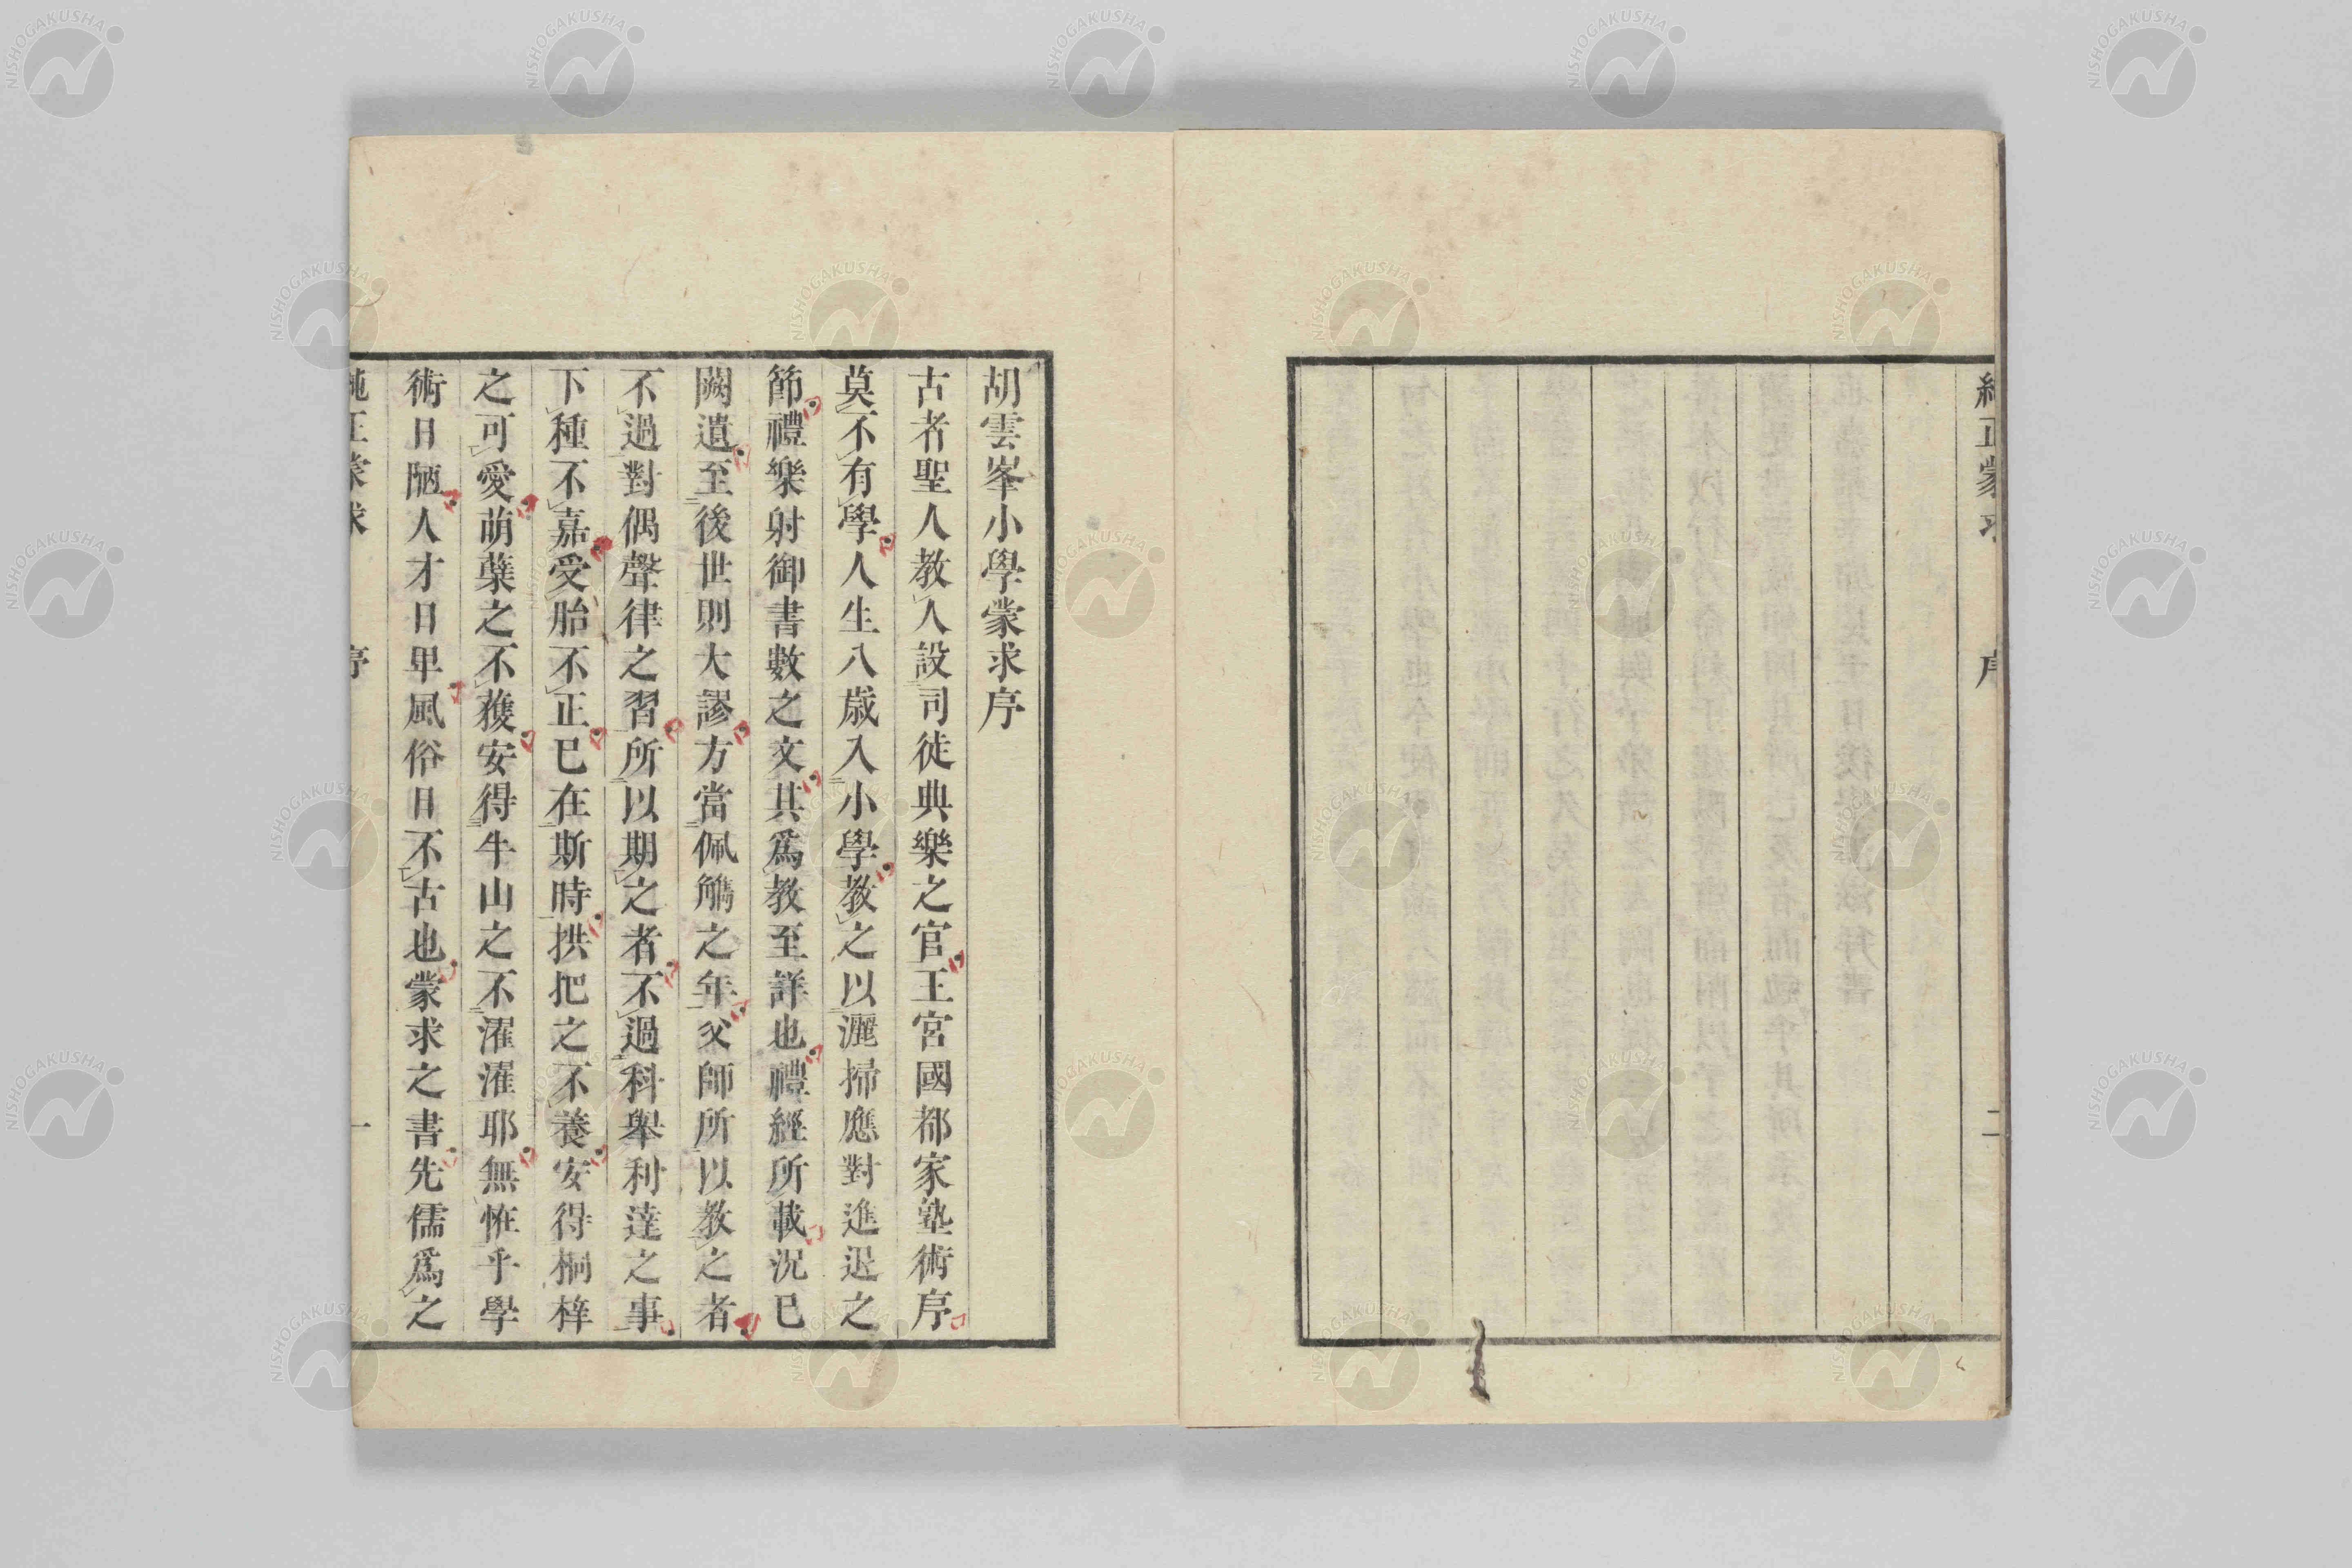 純正蒙求 序 二
胡雲峯小學蒙求序
古者聖人教人設司徒典樂之官王宮國都家塾術序
莫不有學人生八歲入小學教之以灑掃應對進退之
節禮樂射御書數之文其爲教至詳也禮經所載況已
闕遺至後世則大謬方當佩觹之年父師所以教之者
不過對偶聲律之習所以期之者不過科舉利達之事
下種不嘉受胎不正已在斯時拱把之不養安得桐梓
之可愛萌蘖之不獲安得牛山之不濯濯耶無恠乎學
術日陋人才日卑風俗日不古也蒙求之書先儒爲之
純正蒙求 序 一
NISHOGAKUSHA